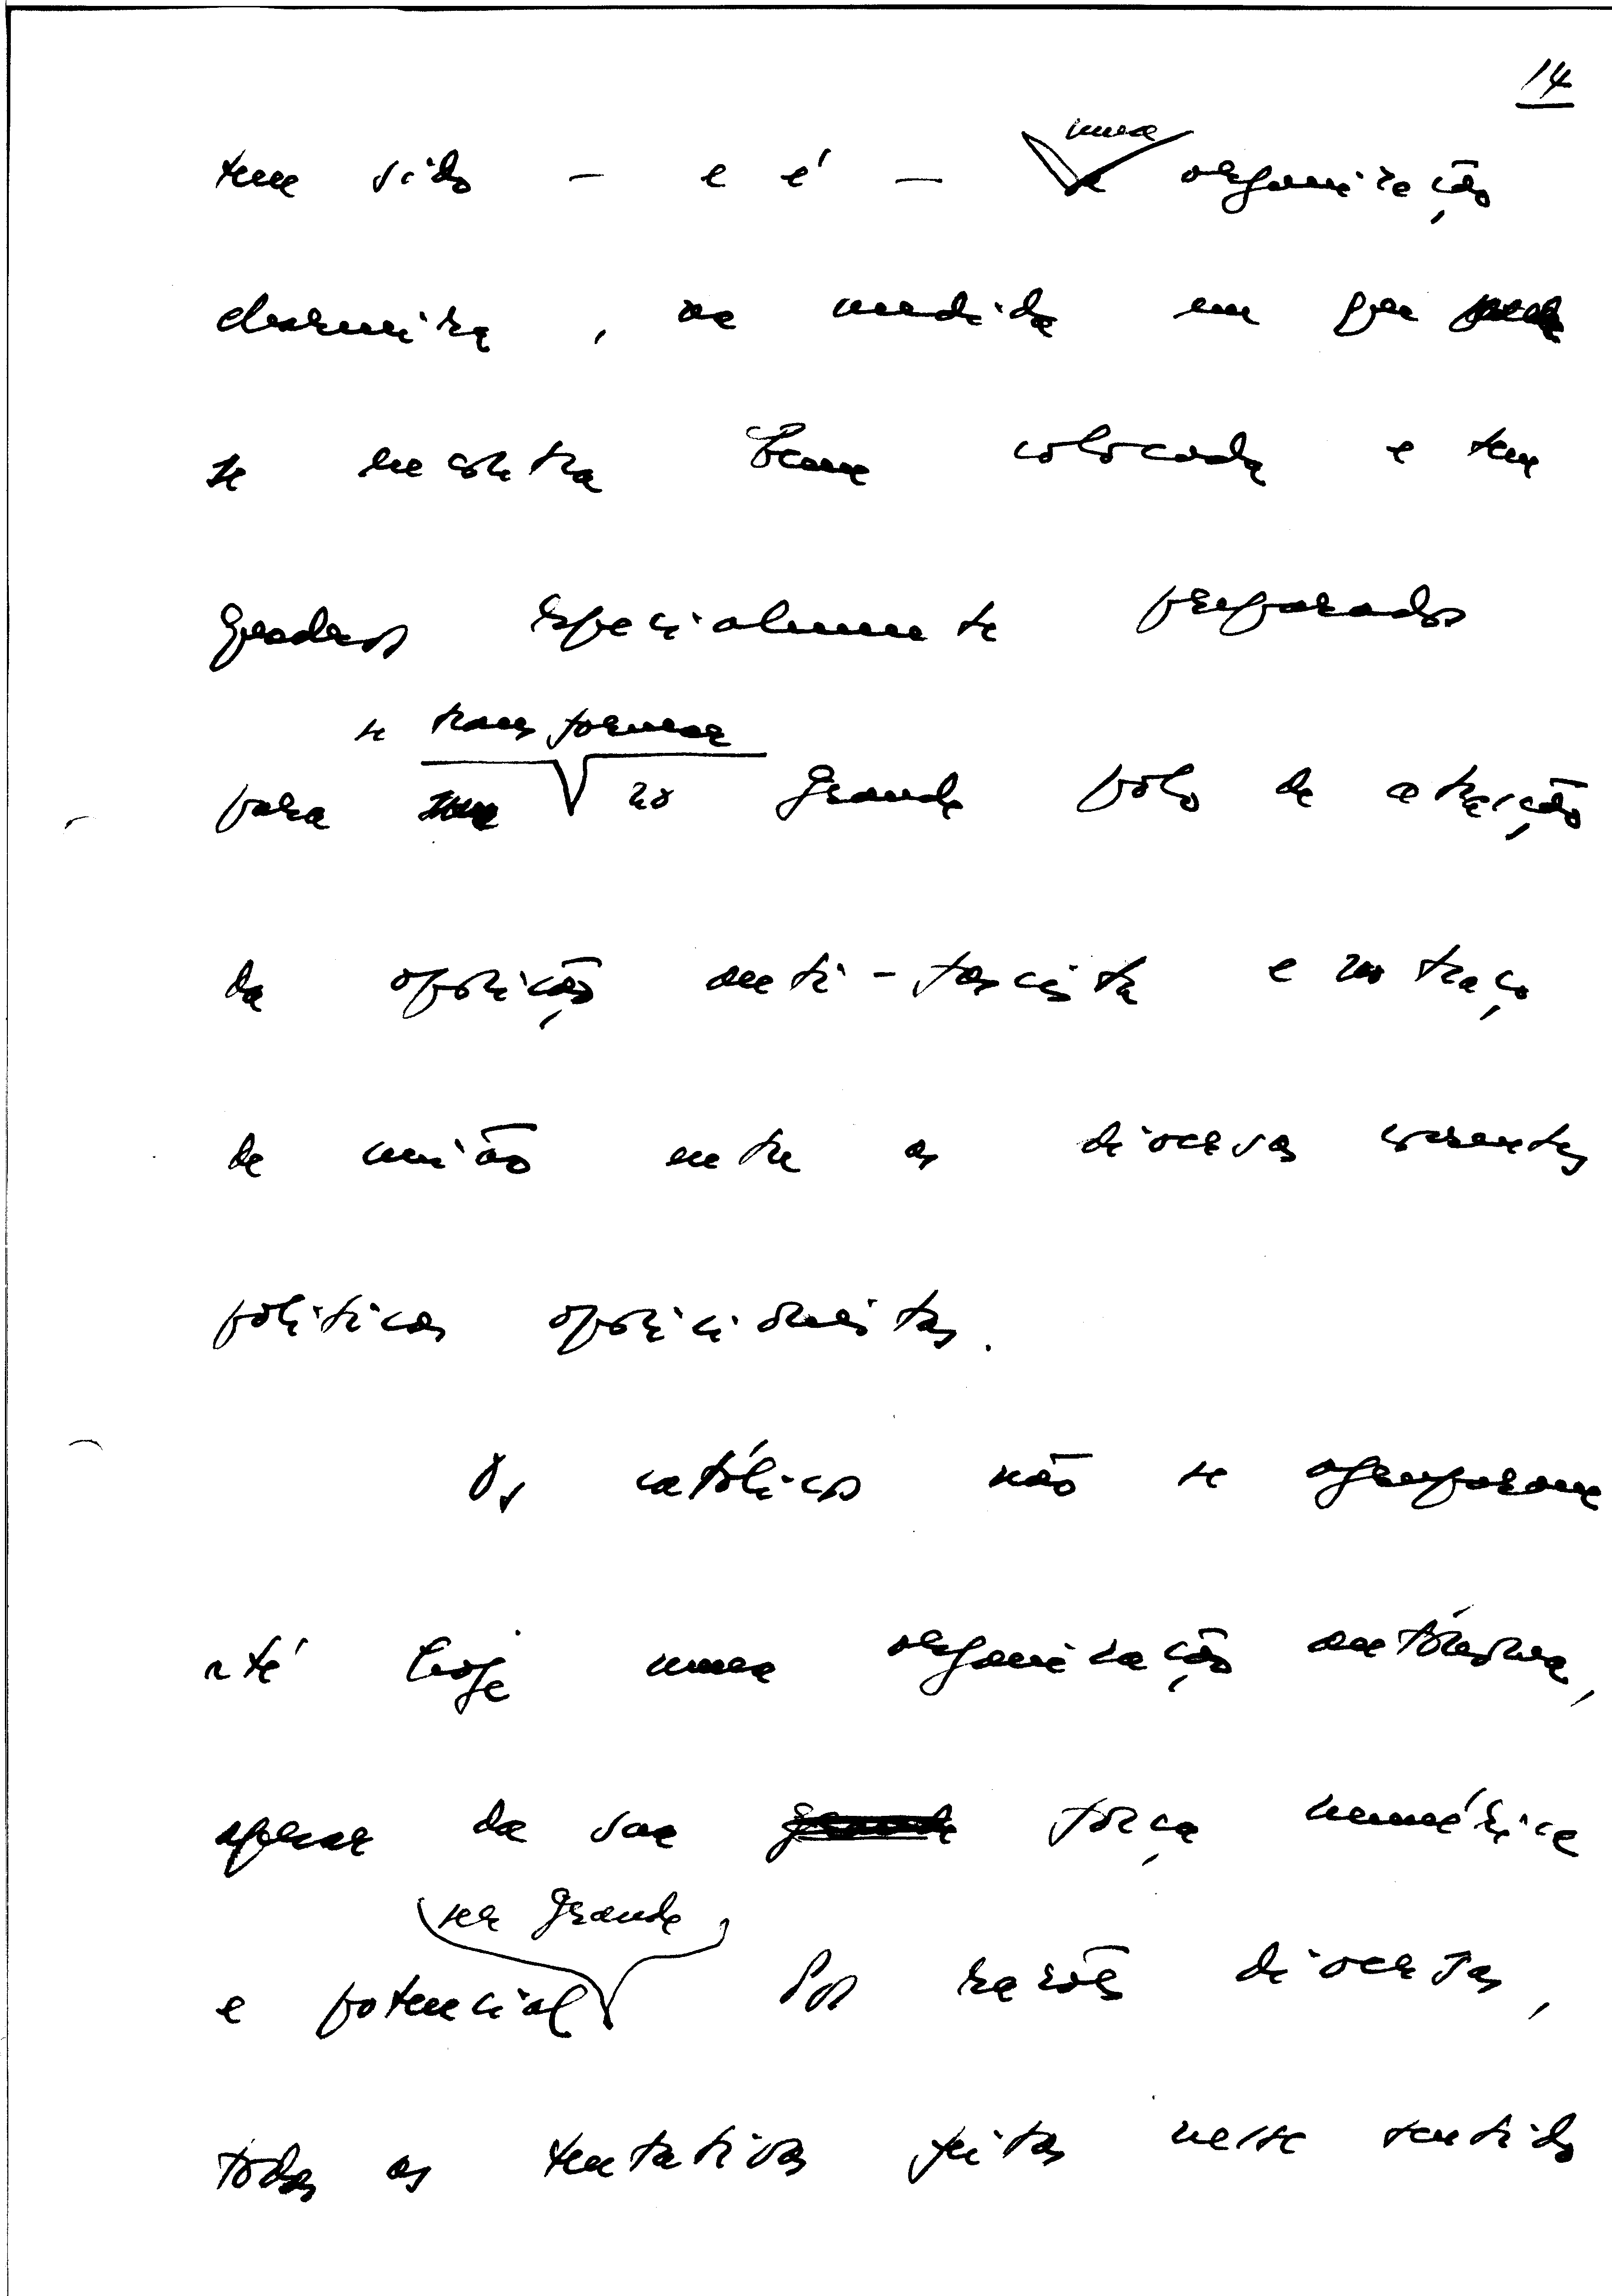 14
uma
tem sido - e é - organização
charneira, na medida em que
se encontra bem colocada e tem
quadros especialmente preparados
se transformar
para no grande polo de atracção
da oposição anti-fascista e no traço
de união entre as diversas correntes
politicas oposicionistas.
Os católicos não se agruparam
até hoje numa organização autónoma,
apesar da sua grande força numérica
ser grande
e potencial Por razões diversas,
todas as tentativas feitas neste sentido